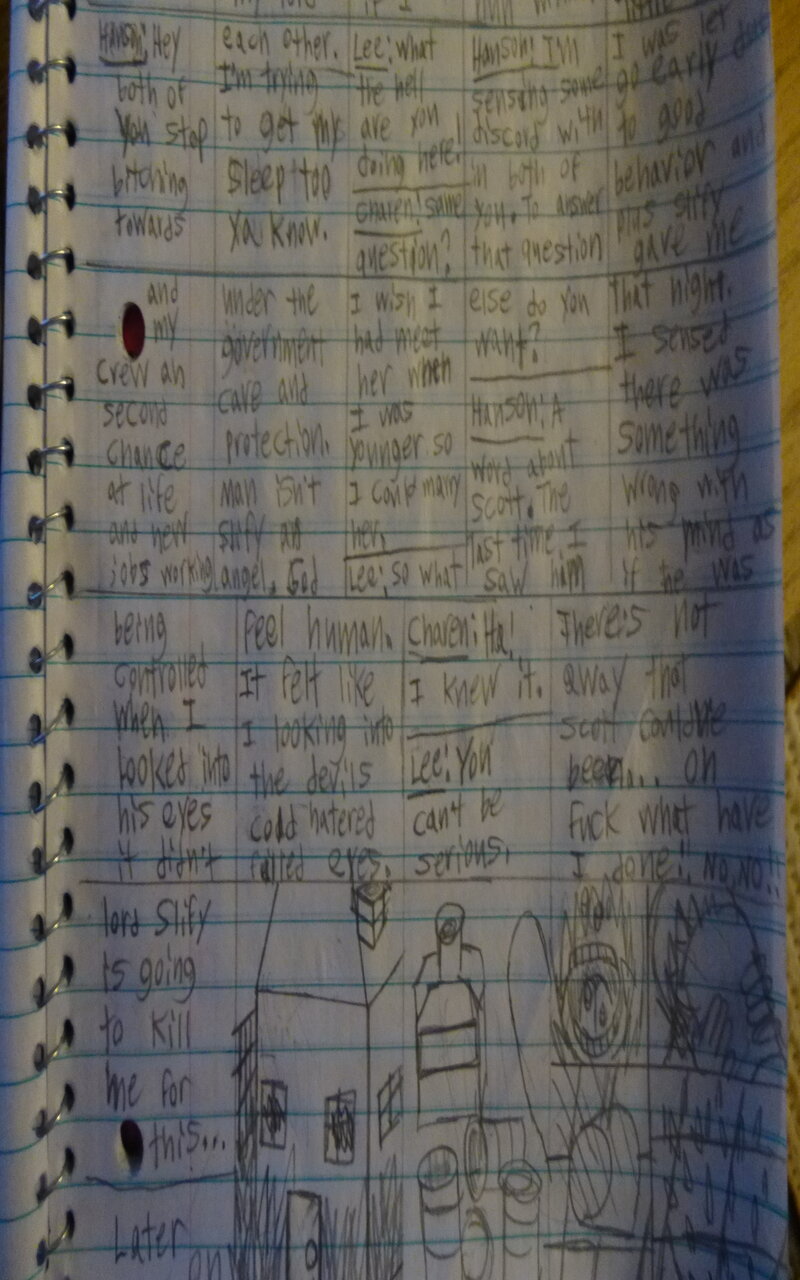 Hanson: Hey
both of
you stop
bitching
towards
each other.
I'm trying
to get my
sleep too
ya know.
Lee: what
the hell
are you
doing here!
Charen: same
question?
Hanson: I'm
sensing some
discord with
in both of
you. To answer
that question
I was let
go early due
to good
behavior and
plus slify
gave me
and
my
crew an
second
chance
at life
and new
jobs working
under the
government
care and
protection.
Man isn't
slify an
angel. God
I wish I
had meet
her when
I was
younger so
I could marry
her.
Lee: so what
else do you
want?
Hanson: A
word about
Scott. The
last time I
saw him
that night.
I sensed
there was
something
wrong with
his mind as
if he was
being
controlled
when I
looked into
his eyes
it didn't
feel human.
It felt like
I looking into
the devils
cold hatered
filled eyes.
Charen: Ha!
I knew it.
Lee: You
can't be
serious.
There's not
away that
Scott could've
been... oh
fuck what have
I done!! No, No!!
lord Slify
is going
to kill
me for
this...
Later
on